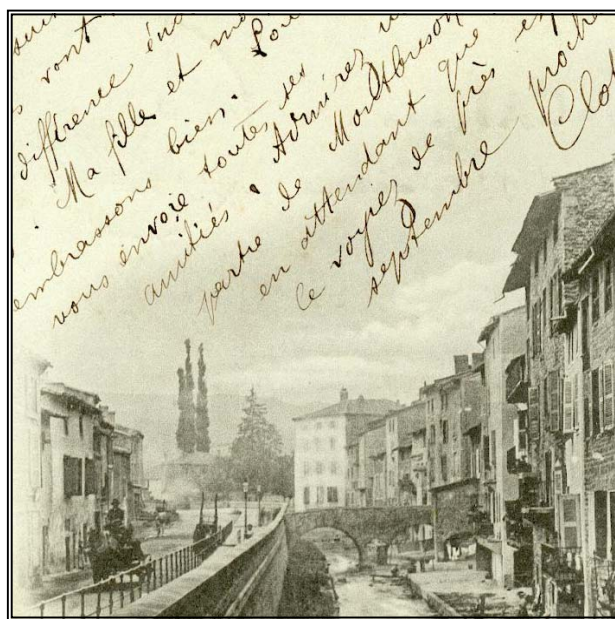 vont
diffrence
Ma fille et
embrassons bien.
vous envoie toutes ses
amitiés. Admirez
partie de Montbrison
en attendant que
le voyez de près proche
septembre Clo